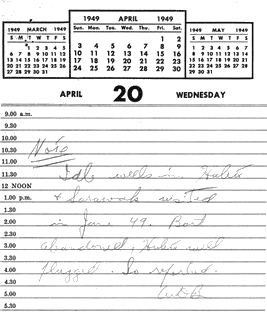 1949 MARCH 1949
S M T W T F S
1 2 3 4 5
6 7 8 9 10 11 12
13 14 15 16 17 18 19
20 21 22 23 24 25 26
27 28 29 30 31
1949 APRIL 1949
Sun. Mon. Tue. Wed. Thu. Fri. Sat.
1 2
3 4 5 6 7 8 9
10 11 12 13 14 15 16
17 18 19 20 21 22 23
24 25 26 27 28 29 30
1949 MAY 1949
S M T W T F S
1 2 3 4 5 6 7
8 9 10 11 12 13 14
15 16 17 18 19 20 21
22 23 24 25 26 27 28
29 30 31
APRIL 20 WEDNESDAY
9.00 a.m.
9.30
10.00
10.30 Note
11.00
11.30 Idle wells in
12 NOON
1.00 p.m. & Sarawak visited
1.30
2.00 in June 49.
2.30
3.00 abandoned, well
3.30
4.00 plugged. So reported.
4.30
5.00
5.30